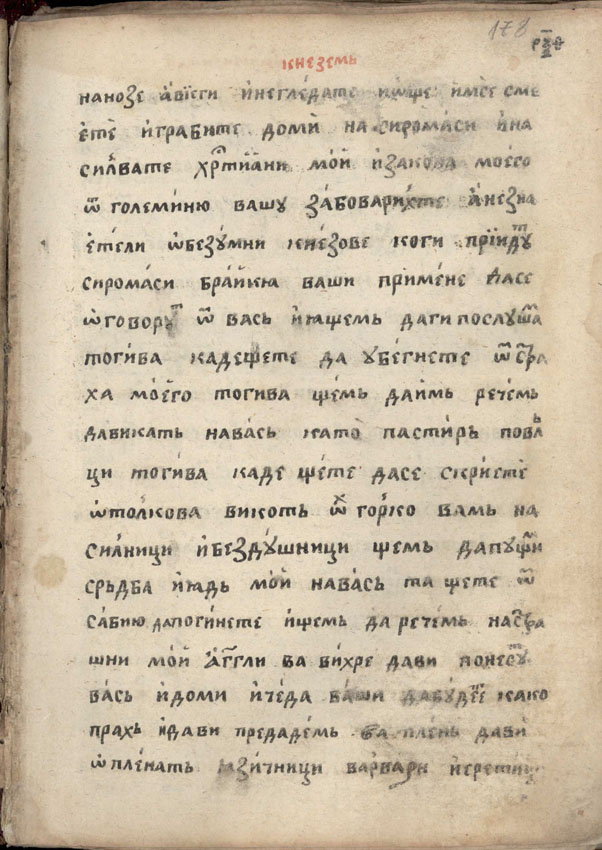 178
рѯѳ
кнеземь
нанозе а҆вїеги и҆негле́дате и҆ѡ҆ще и҆мꙗсе сме
ѐтѐ и҆граби́те доми́ на сирома́си и҆на
си́лвате хрⷭ҇тиꙗ҆ни мо́й и҆закова моего
ѿ големи́ню вашу за́боварихте а҆незна
е҆тели ѡ҆безу́мни кне́зове коги прїи́дуⷮ
сирома́си бра́йкꙗ ваши при́мене да́се
ѡ҆говоруⷮ ѿ вась и҆ꙗщемь даги послꙋша
тоги́ва кадещете да убе́гнете ѿ стра
ха мое́го тоги́ва щемь даи҆мь ре́чемь
давикать нава́сь като̀ пасти́рь повль
ци тоги́ва каде ще́те да́се скри́етѐ
ѡ҆то́лкова викоть ѽ го́рко вамь на
си́лници и҆безду́шници щемь дапущи
срьдба и҆ꙗдь мо́й нава́сь та щете ѿ
са́бию дапоги́нете и҆щемь да речемь настра
шни мо́й а҆́гг҃ли ва ви́хре дави понесуⷮ
ва́сь и҆доми и҆че́да ва́ши дабу́деⷮ како
прахь и҆дави предаде́мь ва пле́нь дави̏
ѡ҆пле́нать ꙗзи́чници варвари и҆еретици